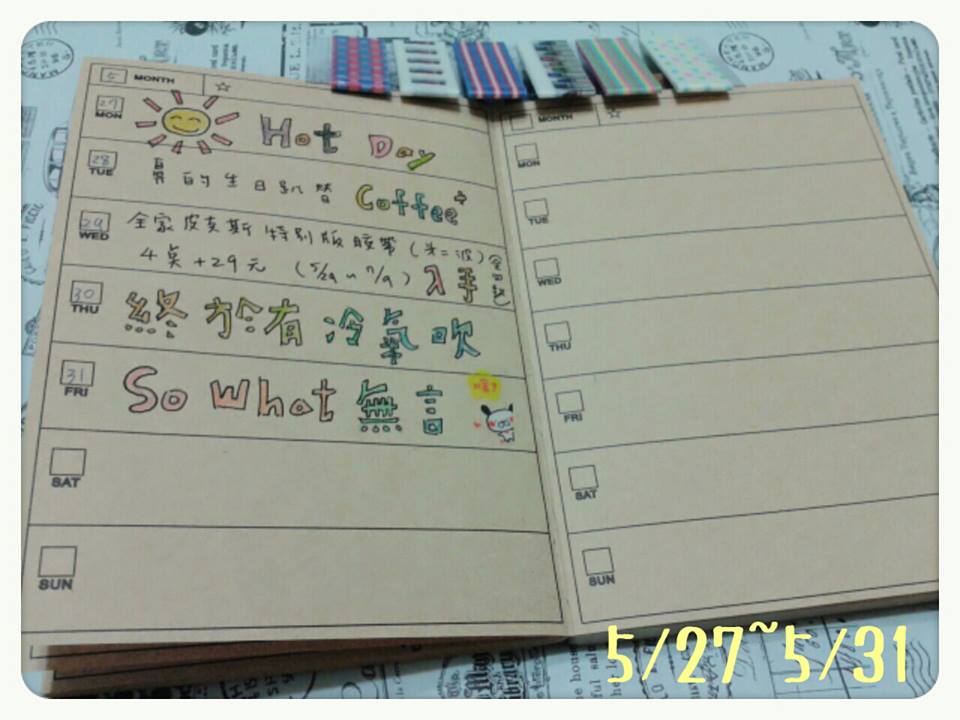 5 MONTH ☆
27 MON Hot Day
28 TUE 的生日趴替 Coffee
29 WED 全家皮克斯特別版膠帶(第二波)
4点+29元 (5/29~7/9) 入手
30 THU 終於有冷氣吹
31 FRI So What 無言
SAT
SUN
MONTH ☆
MON
TUE
WED
THU
FRI
SAT
SUN
5/27~5/31